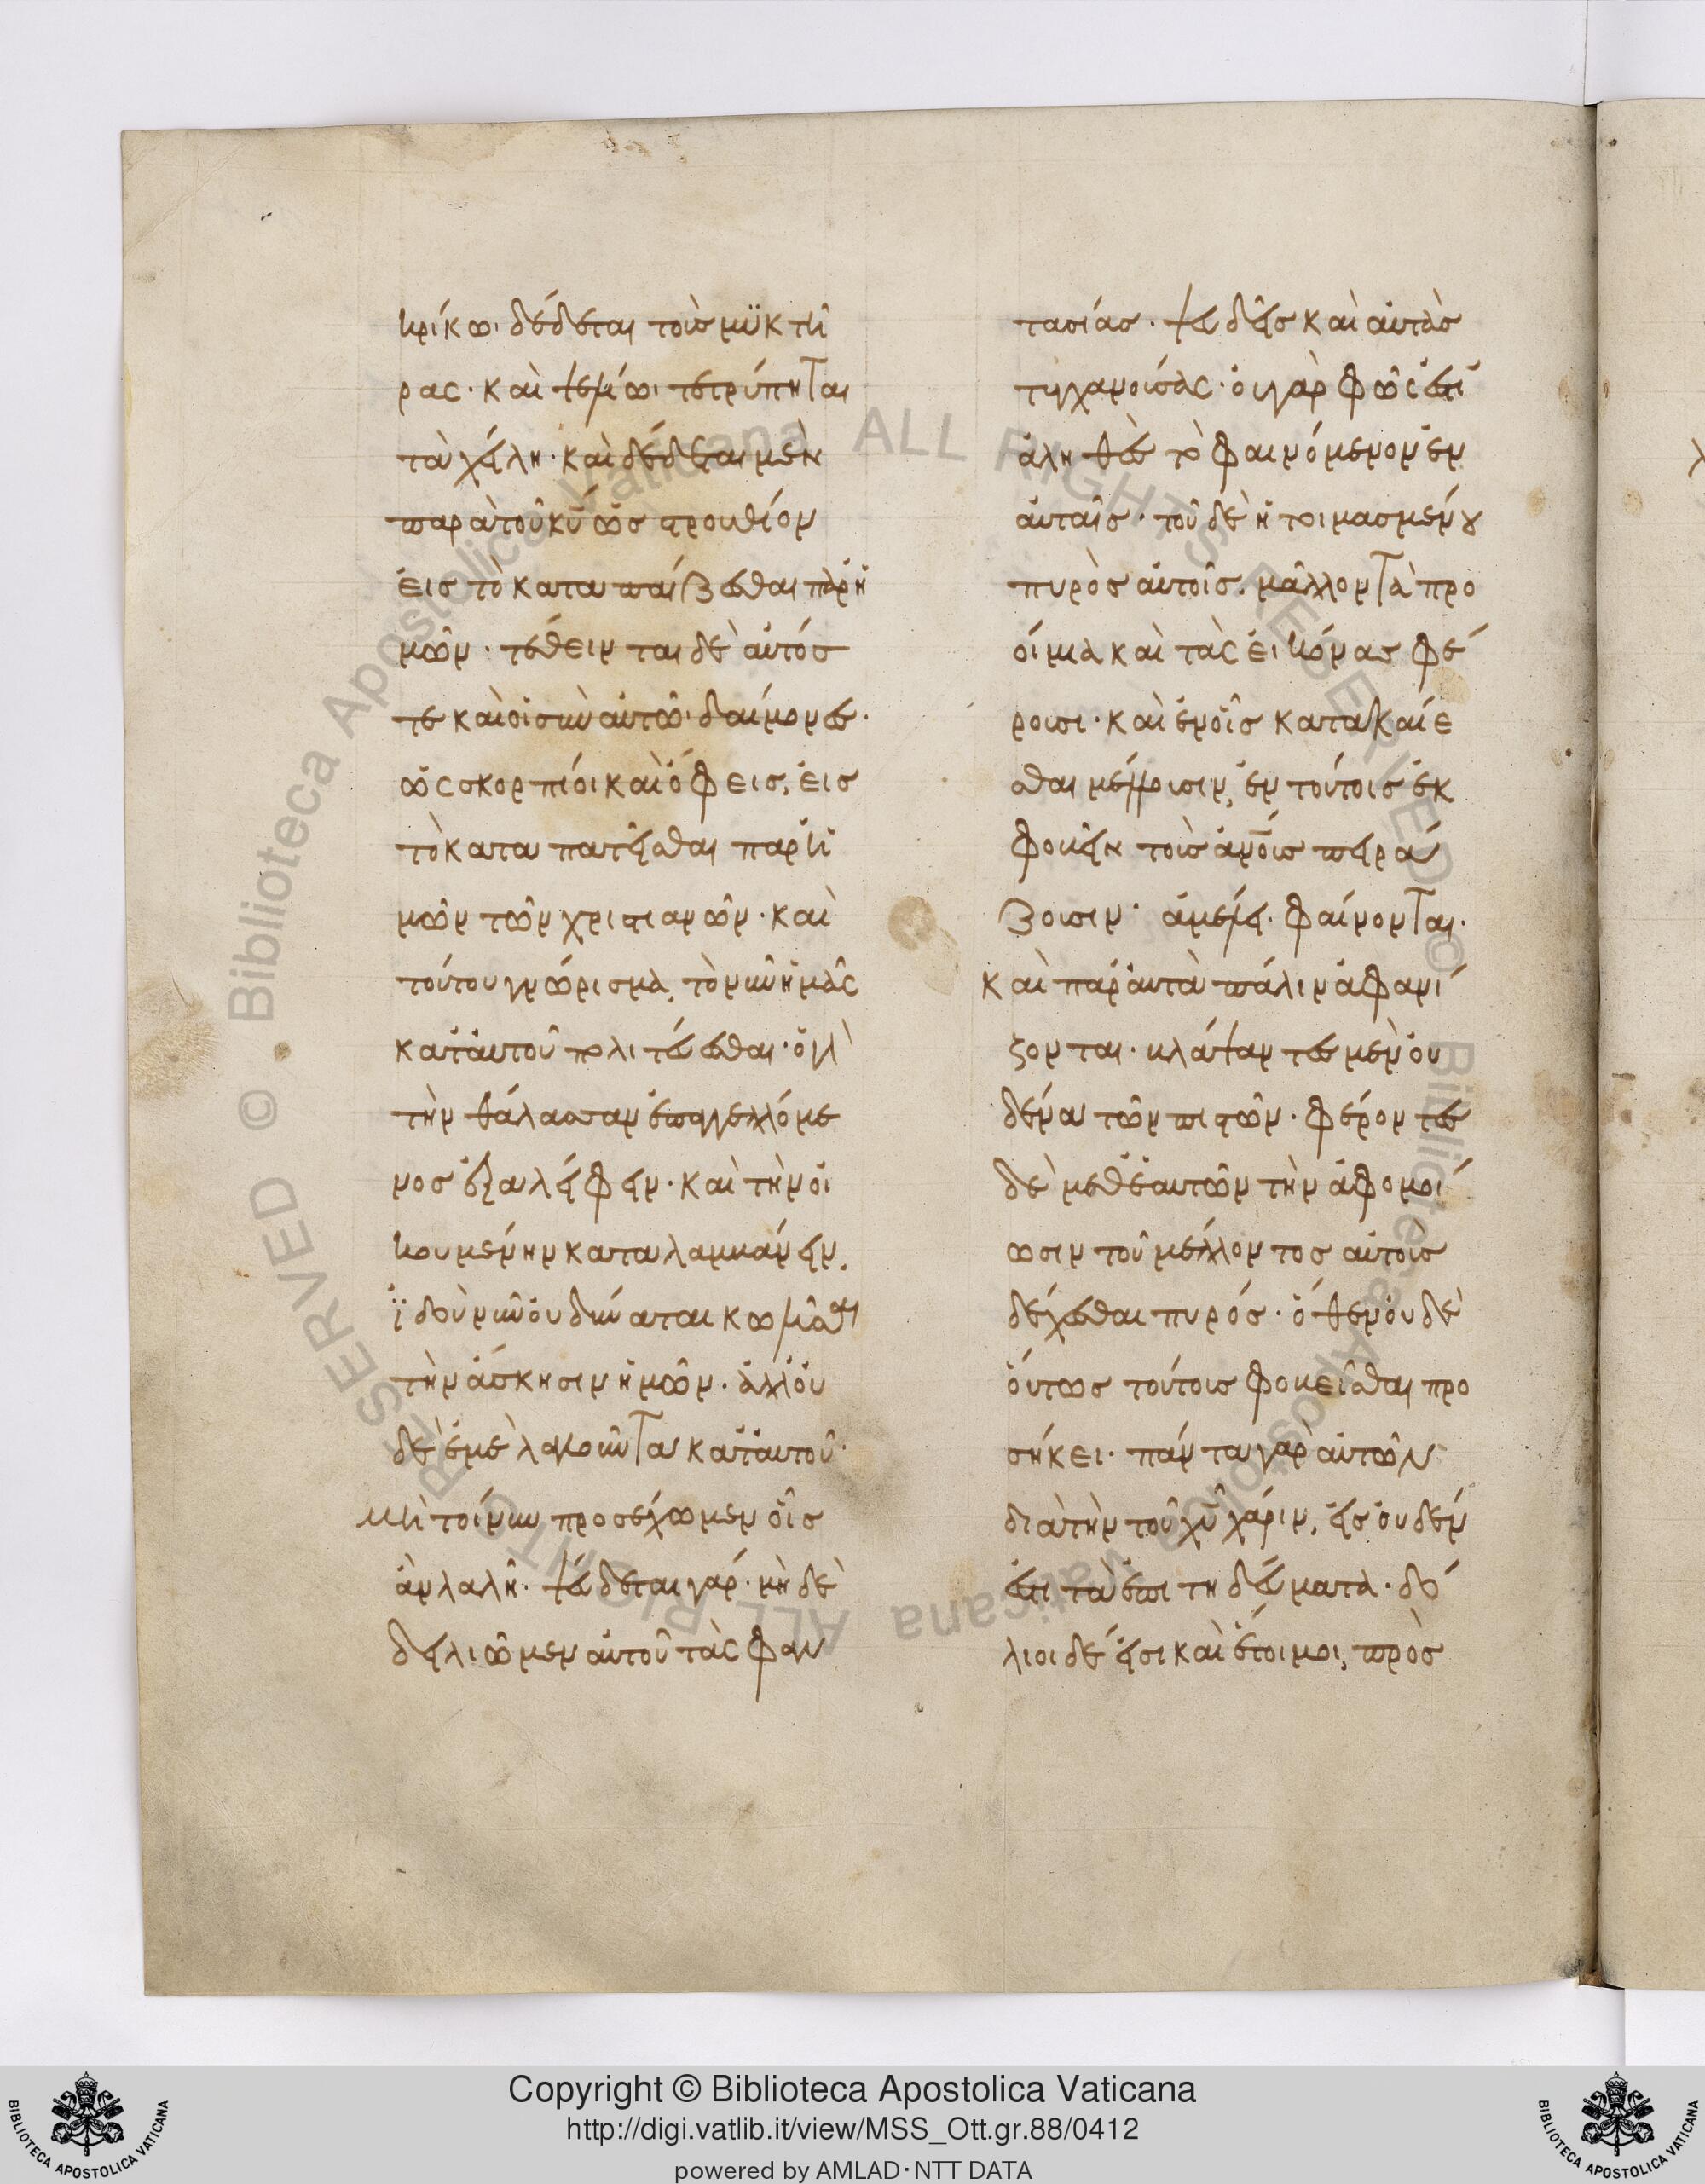 κρίκωι δέδεται τοὺσ μϋκτῆ
ρας· καὶ ψελίωι τετρύπηται
τὰ χείλη· καὶ δέδεται μὲν
παρὰ τοῦ κ̅υ̅ ὡσ στρουθίον
εἰσ τὸ καταπαίζεσθαι παρ ἡ
μῶν· τέθεινται δὲ αὐτόσ
τε καὶ οἱ σὺν αὐτῶι δαίμονεσ·
ὡς σκορπίοι καὶ ὄφεισ, εἰσ
τὸ καταπατεῖσθαι παρ ἡ
μῶν τῶν χριστιανῶν· καὶ
τούτου γνώρισμα, τὸ νῦν ἡμᾶς
κατ αὐτοῦ πολιτεύεσθαι· ὁ γὰρ
τὴν θάλασσαν ἐπαγγελλόμε
νοσ ἐξαλείφειν· καὶ τὴν οἰ
κουμένην καταλαμβάνειν,
ἰδοὺ νῦν οὐ δύναται κωλῦσαι
τὴν ἄσκησιν ἡμῶν· ἀλλ οὐ
δὲ ἐμὲ λαλοῦντα κατ αὐτοῦ·
Μὴ τοίνυν προσέχωμεν οἷσ
ἂν λαλῆ· ψεύδεται γάρ· μὴ δὲ
δειλιῶμεν αὐτοῦ τὰς φαν
τασίασ· ψευδεῖσ καὶ αὐτὰσ
τυγχανούσας· οὐ γὰρ φῶς ἐστὶ
ἀληθὲσ τὸ φαινόμενον ἐν
αὐταῖσ· τοῦ δὲ ἡτοιμασμένου
πυρὸσ αὐτοῖσ, μᾶλλον τὰ προ
οίμια καὶ τὰς εἰκόνασ φέ
ρουσι· καὶ ἐν οἷσ κατακαίε
σθαι μέλλουσιν, ἐν τούτοισ ἐκ
φοβεῖν τοὺσ ἀ̅ν̅ο̅υ̅σ πειρά
ζουσιν· ἀμέλει φαίνονται·
καὶ παρ αυτὰ πάλιν ἀφανί
ζονται· βλάψαντεσ μὲν οὐ
δένα τῶν πιστῶν· φέροντεσ
δὲ μεθ ἑαυτῶν τὴν ἀφομοί
ωσιν τοῦ μέλλοντοσ αὐτοὺσ
δέχεσθαι πυρόσ· ὅθεν οὐ δὲ
οὕτωσ τούτουσ φοβεῖσθαι προ
σήκει· πάντα γὰρ αὐτῶν
διὰ τὴν τοῦ χ̅υ̅ χάριν, εἰσ οὐδέν
ἐστι τὰ ἐπιτηδεύματα· δό
λιοι δέ εἰσι καὶ ἕτοιμοι, πρὸσ
Copyright © Biblioteca Apostolica Vaticana
http://digi.vatlib.it/view/MSS_Ott.gr.88/0412
powered by AMLAD·NTT DATA